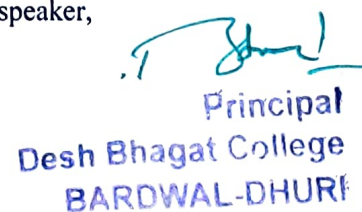 speaker,
Principal
Desh Bhagat College
BARDWAL-DHURI